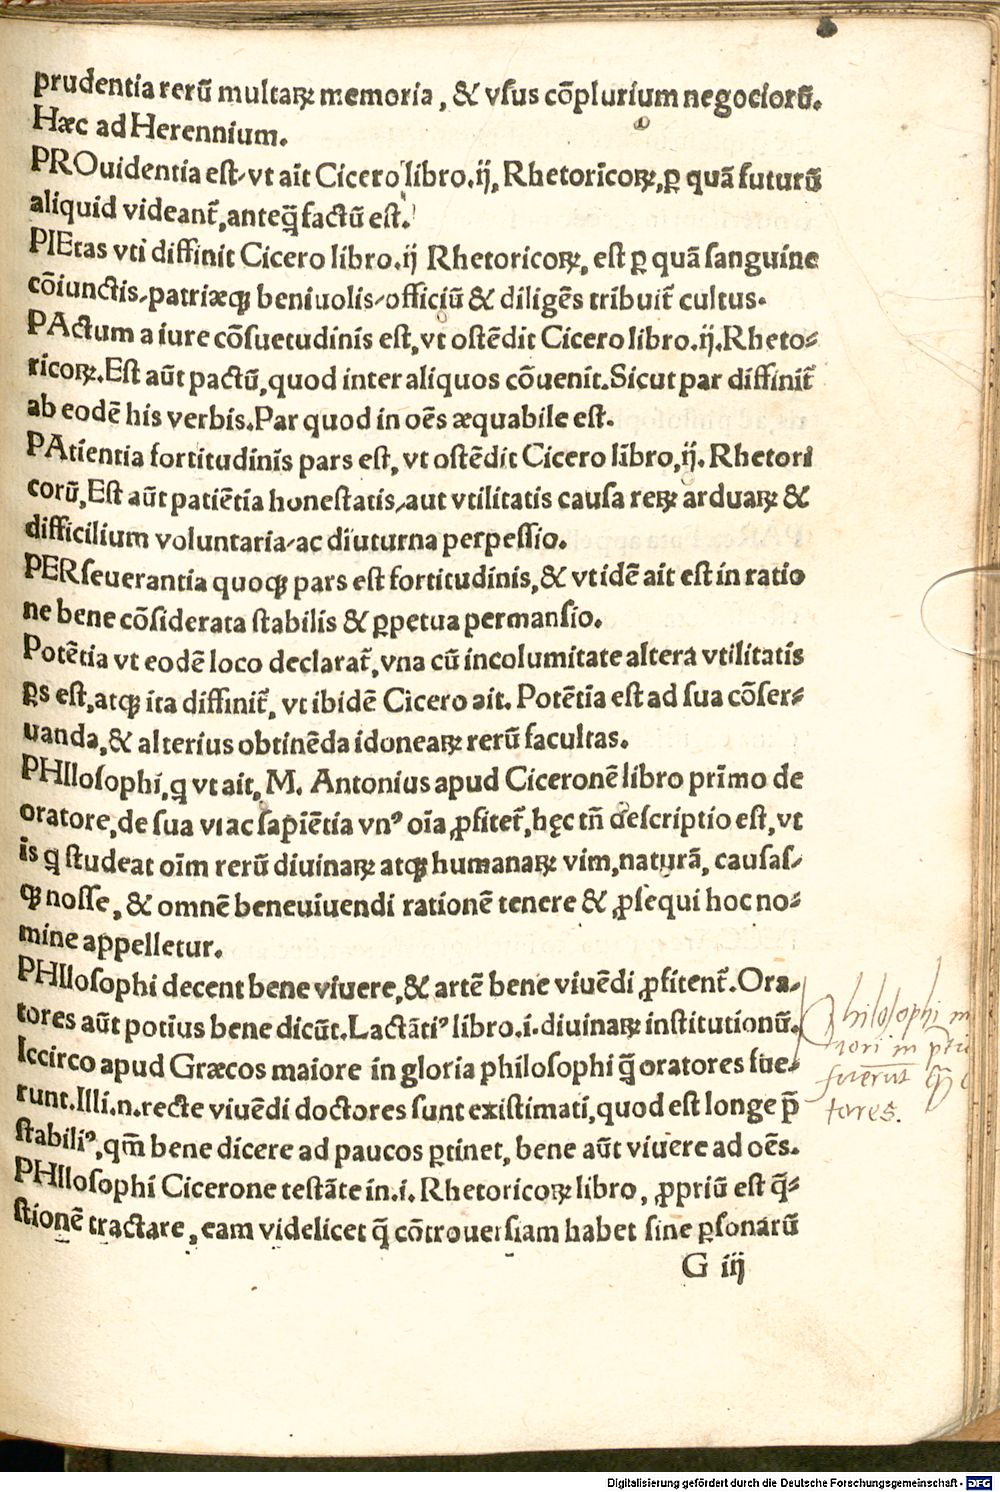 prudentia rerū multaꝝ memoria, & vſus cōplurium negociorū.
Hæc ad Herennium.
PROuidentia eſt, vt ait Cicero libro.ij. Rhetoricoꝝ, ꝑ quā futurū
aliquid videant᷑, anteq̄ factū eſt.
PIEtas vti diffinit Cicero libro.ij Rhetoricoꝝ, eſt ꝑ quā ſanguine
cōiunctis, patriæqꝫ beniuolis, officiū & diligēs tribuit᷑ cultus.
PActum a iure cōſuetudinis eſt, vt oſtēdit Cicero libro.ij. Rheto-
ricoꝝ. Eſt aūt pactū, quod inter aliquos cōuenit. Sicut par diffinit᷑
ab eodē his verbis. Par quod in oēs æquabile eſt.
PAtientia fortitudinis pars eſt, vt oſtēdit Cicero libro, ij. Rhetori
corū, Eſt aūt patiētia honeſtatis, aut vtilitatis cauſa reꝝ arduaꝝ &
difficilium voluntaria, ac diuturna perpeſſio.
PERſeuerantia quoqꝫ pars eſt fortitudinis, & vt idē ait eſt in ratio
ne bene cōſiderata ſtabilis & ꝑpetua permanſio.
Potētia vt eodē loco declarat᷑, vna cū incolumitate altera vtilitatis
ꝑs eſt, atqꝫ ita diffinit᷑, vt ibidē Cicero ait. Potētia eſt ad ſua cōſer-
uanda, & alterius obtinēda idoneaꝝ rerū facultas.
PHIloſophi, q vt ait, M. Antonius apud Ciceronē libro primo de
oratore, de ſua vi ac ſapiētia vnꝰ oīa ꝓfitet᷑, hęc tn̄ deſcriptio eſt, vt
is q ſtudeat oīm rerū diuinaꝝ atqꝫ humanaꝝ vim, naturā, cauſas,
qꝫ noſſe, & omnē bene viuendi rationē tenere & ꝓſequi hoc no-
mine appelletur.
PHIloſophi decent bene viuere, & artē bene viuēdi ꝓfitent᷑. Ora-
tores aūt potius bene dicūt. Lactātiꝰ libro.i. diuinaꝝ inſtitutionū.
Iccirco apud Græcos maiore in gloria philoſophi q̄ oratores fue-
runt. Illi.n. recte viuēdi doctores ſunt exiſtimati, quod eſt longe p̄
ſtabiliꝰ, qm̄ bene dicere ad paucos ꝑtinet, bene aūt viuere ad oēs.
PHIloſophi Cicerone teſtāte in.i. Rhetoricoꝝ libro, ꝓpriū eſt q̄-
ſtionē tractare, eam videlicet q̄ cōtrouerſiam habet ſine ꝑſonarū
G iij
Philosophi
fuerunt
tores.
Digitalisierung gefördert durch die Deutsche Forschungsgemeinschaft - DFG